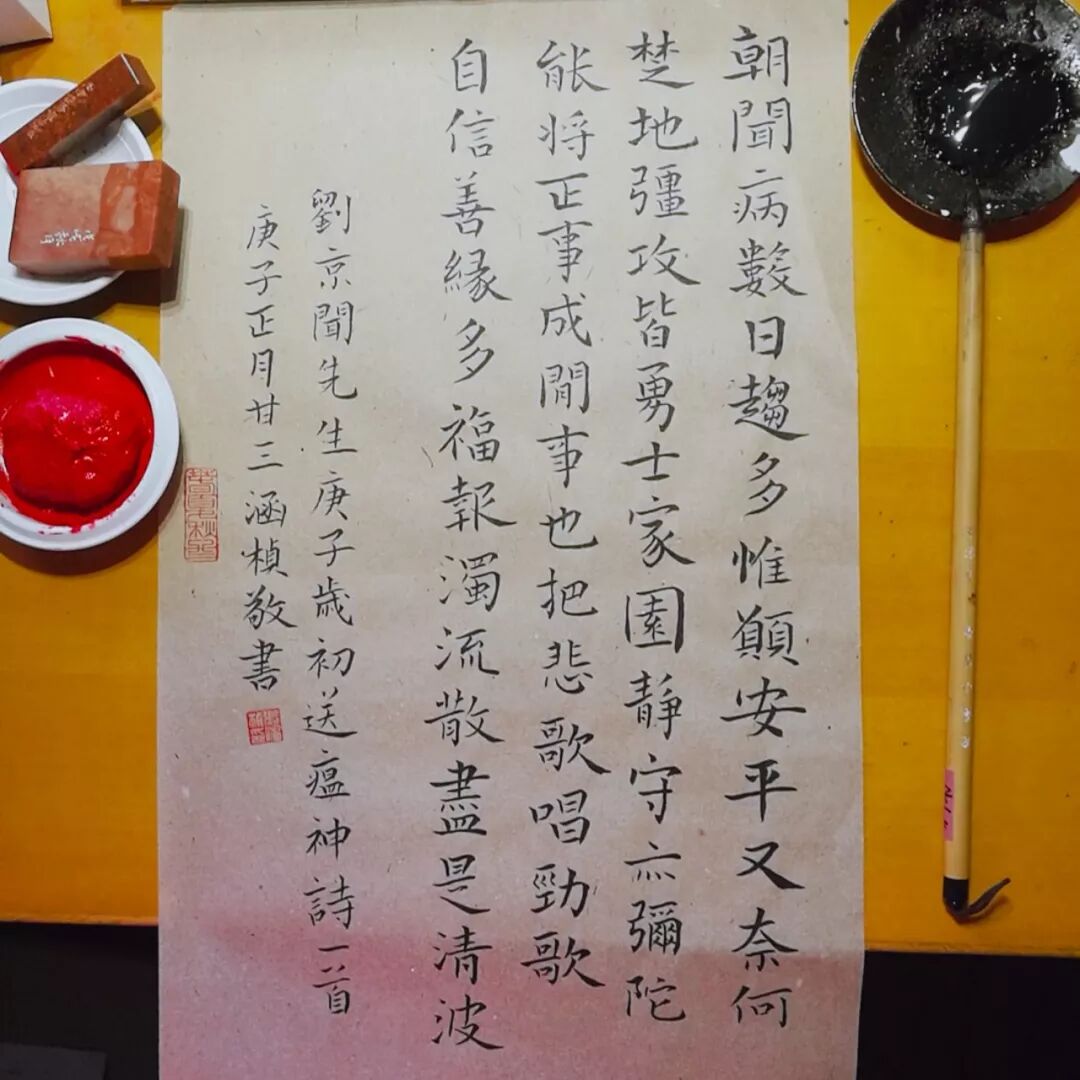 朝聞病數日趨多惟願安平又奈何
楚地彊攻皆勇士家園靜守亦彌陀
能將正事成閒事也把悲歌唱勁歌
自信善緣多福報濁流散盡是清波
劉京聞先生庚子歲初送瘟神詩一首
庚子正月廿三涵楨敬書